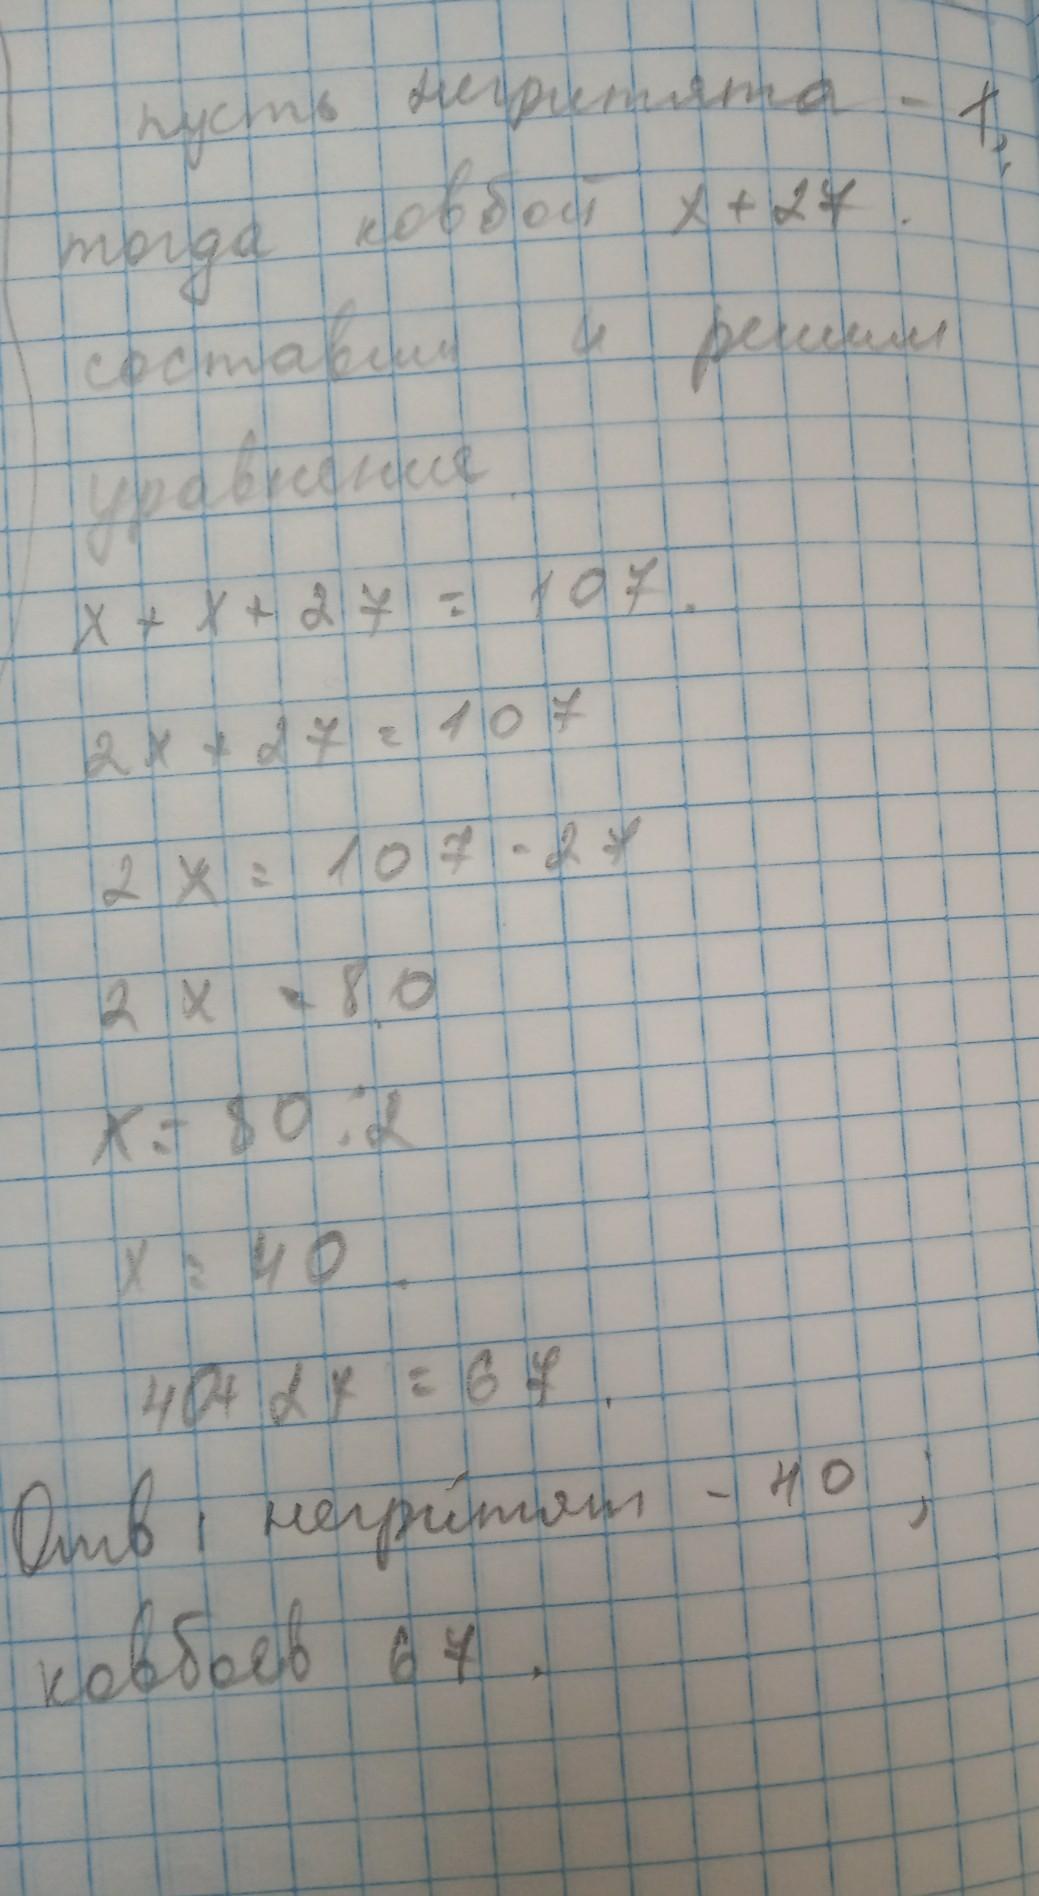 пусть негритята - х,
тогда ковбой х + 27.
составим и решим
уравнение
х + х + 27 = 107.
2х + 27 = 107
2х = 107 - 27
2х = 80
х = 80 : 2
х = 40.
40 + 27 = 67.
Отв: негритят - 40;
ковбоев 67.